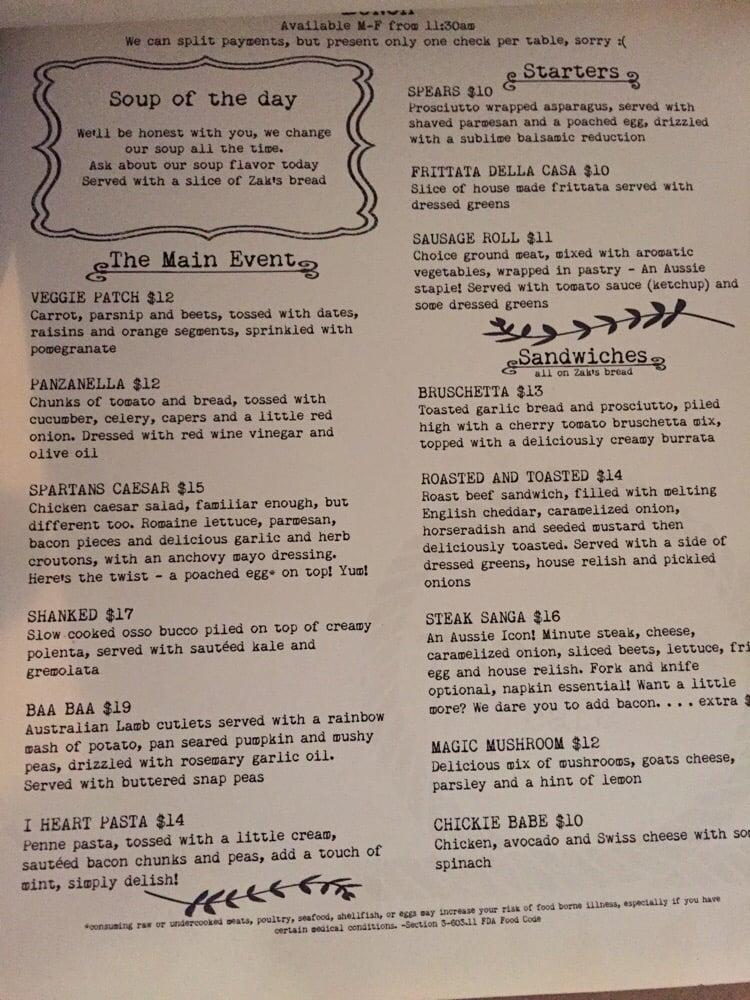 Available M-F from 11:30am
We can split payments, but present only one check per table, sorry :(
Soup of the day
We'll be honest with you, we change
our soup all the time.
Ask about our soup flavor today
Served with a slice of Zak's bread
The Main Event
VEGGIE PATCH $12
Carrot, parsnip and beets, tossed with dates,
raisins and orange segments, sprinkled with
pomegranate
PANZANELLA $12
Chunks of tomato and bread, tossed with
cucumber, celery, capers and a little red
onion. Dressed with red wine vinegar and
olive oil
SPARTANS CAESAR $15
Chicken caesar salad, familiar enough, but
different too. Romaine lettuce, parmesan,
bacon pieces and delicious garlic and herb
croutons, with an anchovy mayo dressing.
Here's the twist - a poached egg* on top! Yum!
SHANKED $17
Slow cooked osso bucco piled on top of creamy
polenta, served with sautéed kale and
gremolata
BAA BAA $19
Australian Lamb cutlets served with a rainbow
mash of potato, pan seared pumpkin and mushy
peas, drizzled with rosemary garlic oil.
Served with buttered snap peas
I HEART PASTA $14
Penne pasta, tossed with a little cream,
sautéed bacon chunks and peas, add a touch of
mint, simply delish!
Starters
SPEARS $10
Prosciutto wrapped asparagus, served with
shaved parmesan and a poached egg, drizzled
with a sublime balsamic reduction
FRITTATA DELLA CASA $10
Slice of house made frittata served with
dressed greens
SAUSAGE ROLL $11
Choice ground meat, mixed with aromatic
vegetables, wrapped in pastry - An Aussie
staple! Served with tomato sauce (ketchup) and
some dressed greens
Sandwiches
all on Zak's bread
BRUSCHETTA $13
Toasted garlic bread and prosciutto, piled
high with a cherry tomato bruschetta mix,
topped with a deliciously creamy burrata
ROASTED AND TOASTED $14
Roast beef sandwich, filled with melting
English cheddar, caramelized onion,
horseradish and seeded mustard then
deliciously toasted. Served with a side of
dressed greens, house relish and pickled
onions
STEAK SANGA $16
An Aussie Icon! Minute steak, cheese,
caramelized onion, sliced beets, lettuce,
egg and house relish. Fork and knife
optional, napkin essential! Want a little
more? We dare you to add bacon.... extra
MAGIC MUSHROOM $12
Delicious mix of mushrooms, goats cheese,
parsley and a hint of lemon
CHICKIE BABE $10
Chicken, avocado and Swiss cheese with
spinach
*consuming raw or undercooked meats, poultry, seafood, shellfish, or eggs may increase your risk of food borne illness, especially if you have
certain medical conditions. -Section 3-603.11 FDA Food Code